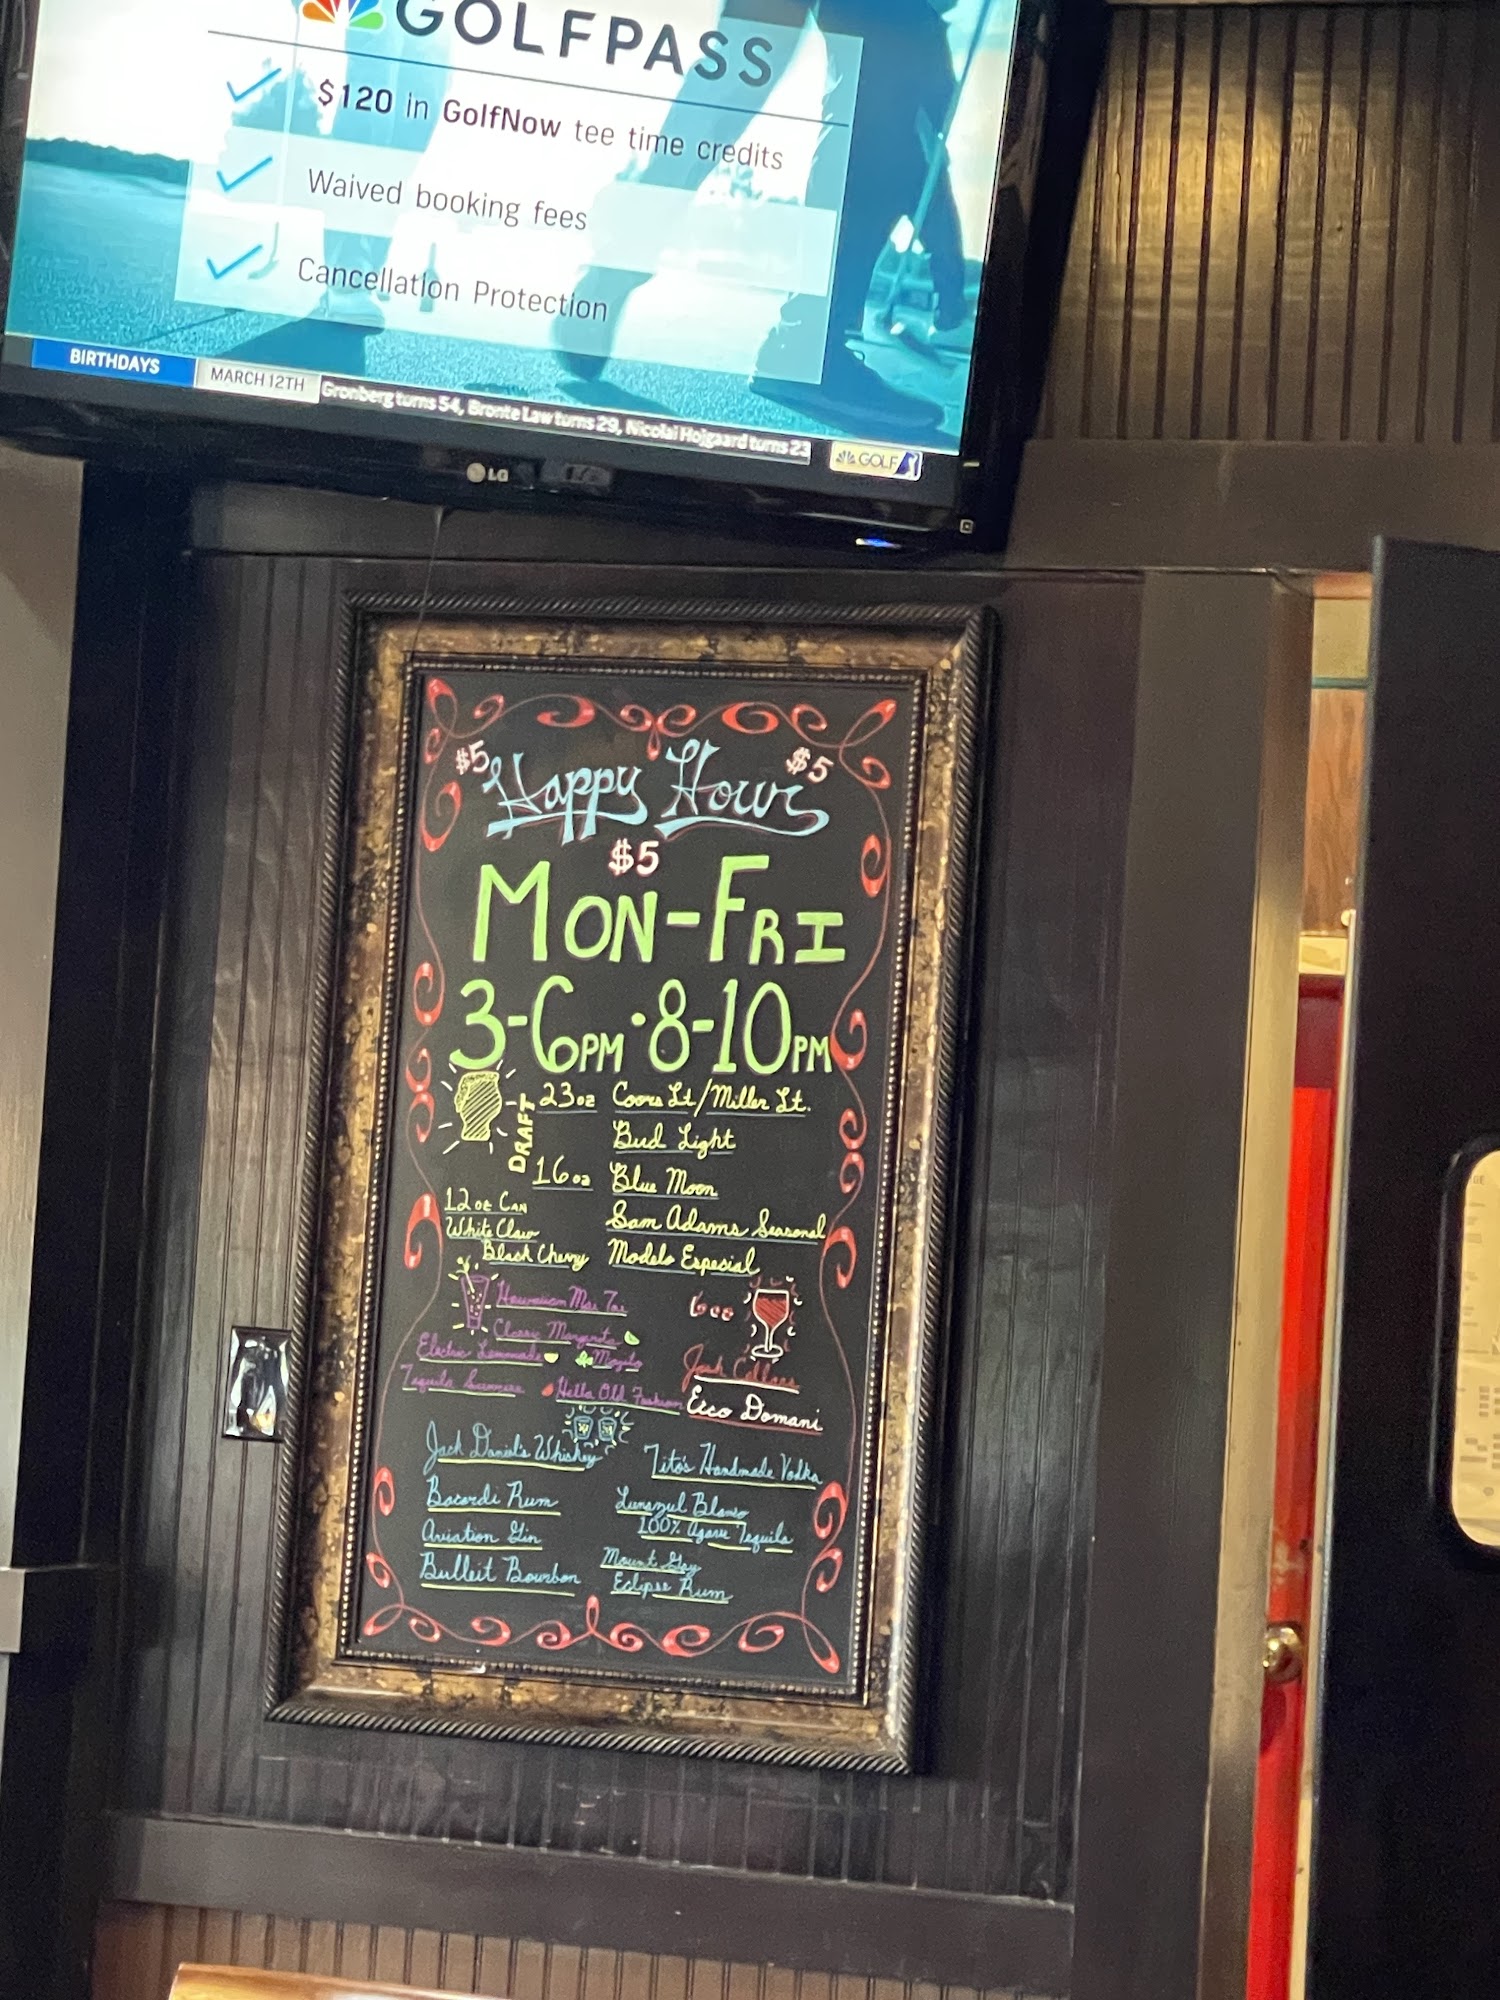 GOLFPASS
$120 in GolfNow tee time credits
Waived booking fees
Cancellation Protection
BIRTHDAYS
MARCH 12TH
Gronberg turns 54, Bronte Law turns 29, Nicolai Hojgaard turns 23
GOLF
LG
$5 Happy Hour $5
$5
MON-FRI
3-6PM·8-10PM
DRAFT
23oz Coors Lt/Miller Lt.
Bud Light
16oz Blue Moon
12oz Can
White Claw
Black Cherry
Sam Adams Seasonal
Modelo Especial
Hawaiian Mai Tai
Classic Margarita
Electric Lemonade
Mojito
Tequila Sunrise
Hella Old Fashion
6oz
Josh Cellars
Ecco Domani
Jack Daniel's Whiskey
Tito's Handmade Vodka
Bacardi Rum
Lunazul Blanco
100% Agave Tequila
Aviation Gin
Bulleit Bourbon
Mount Gay
Eclipse Rum